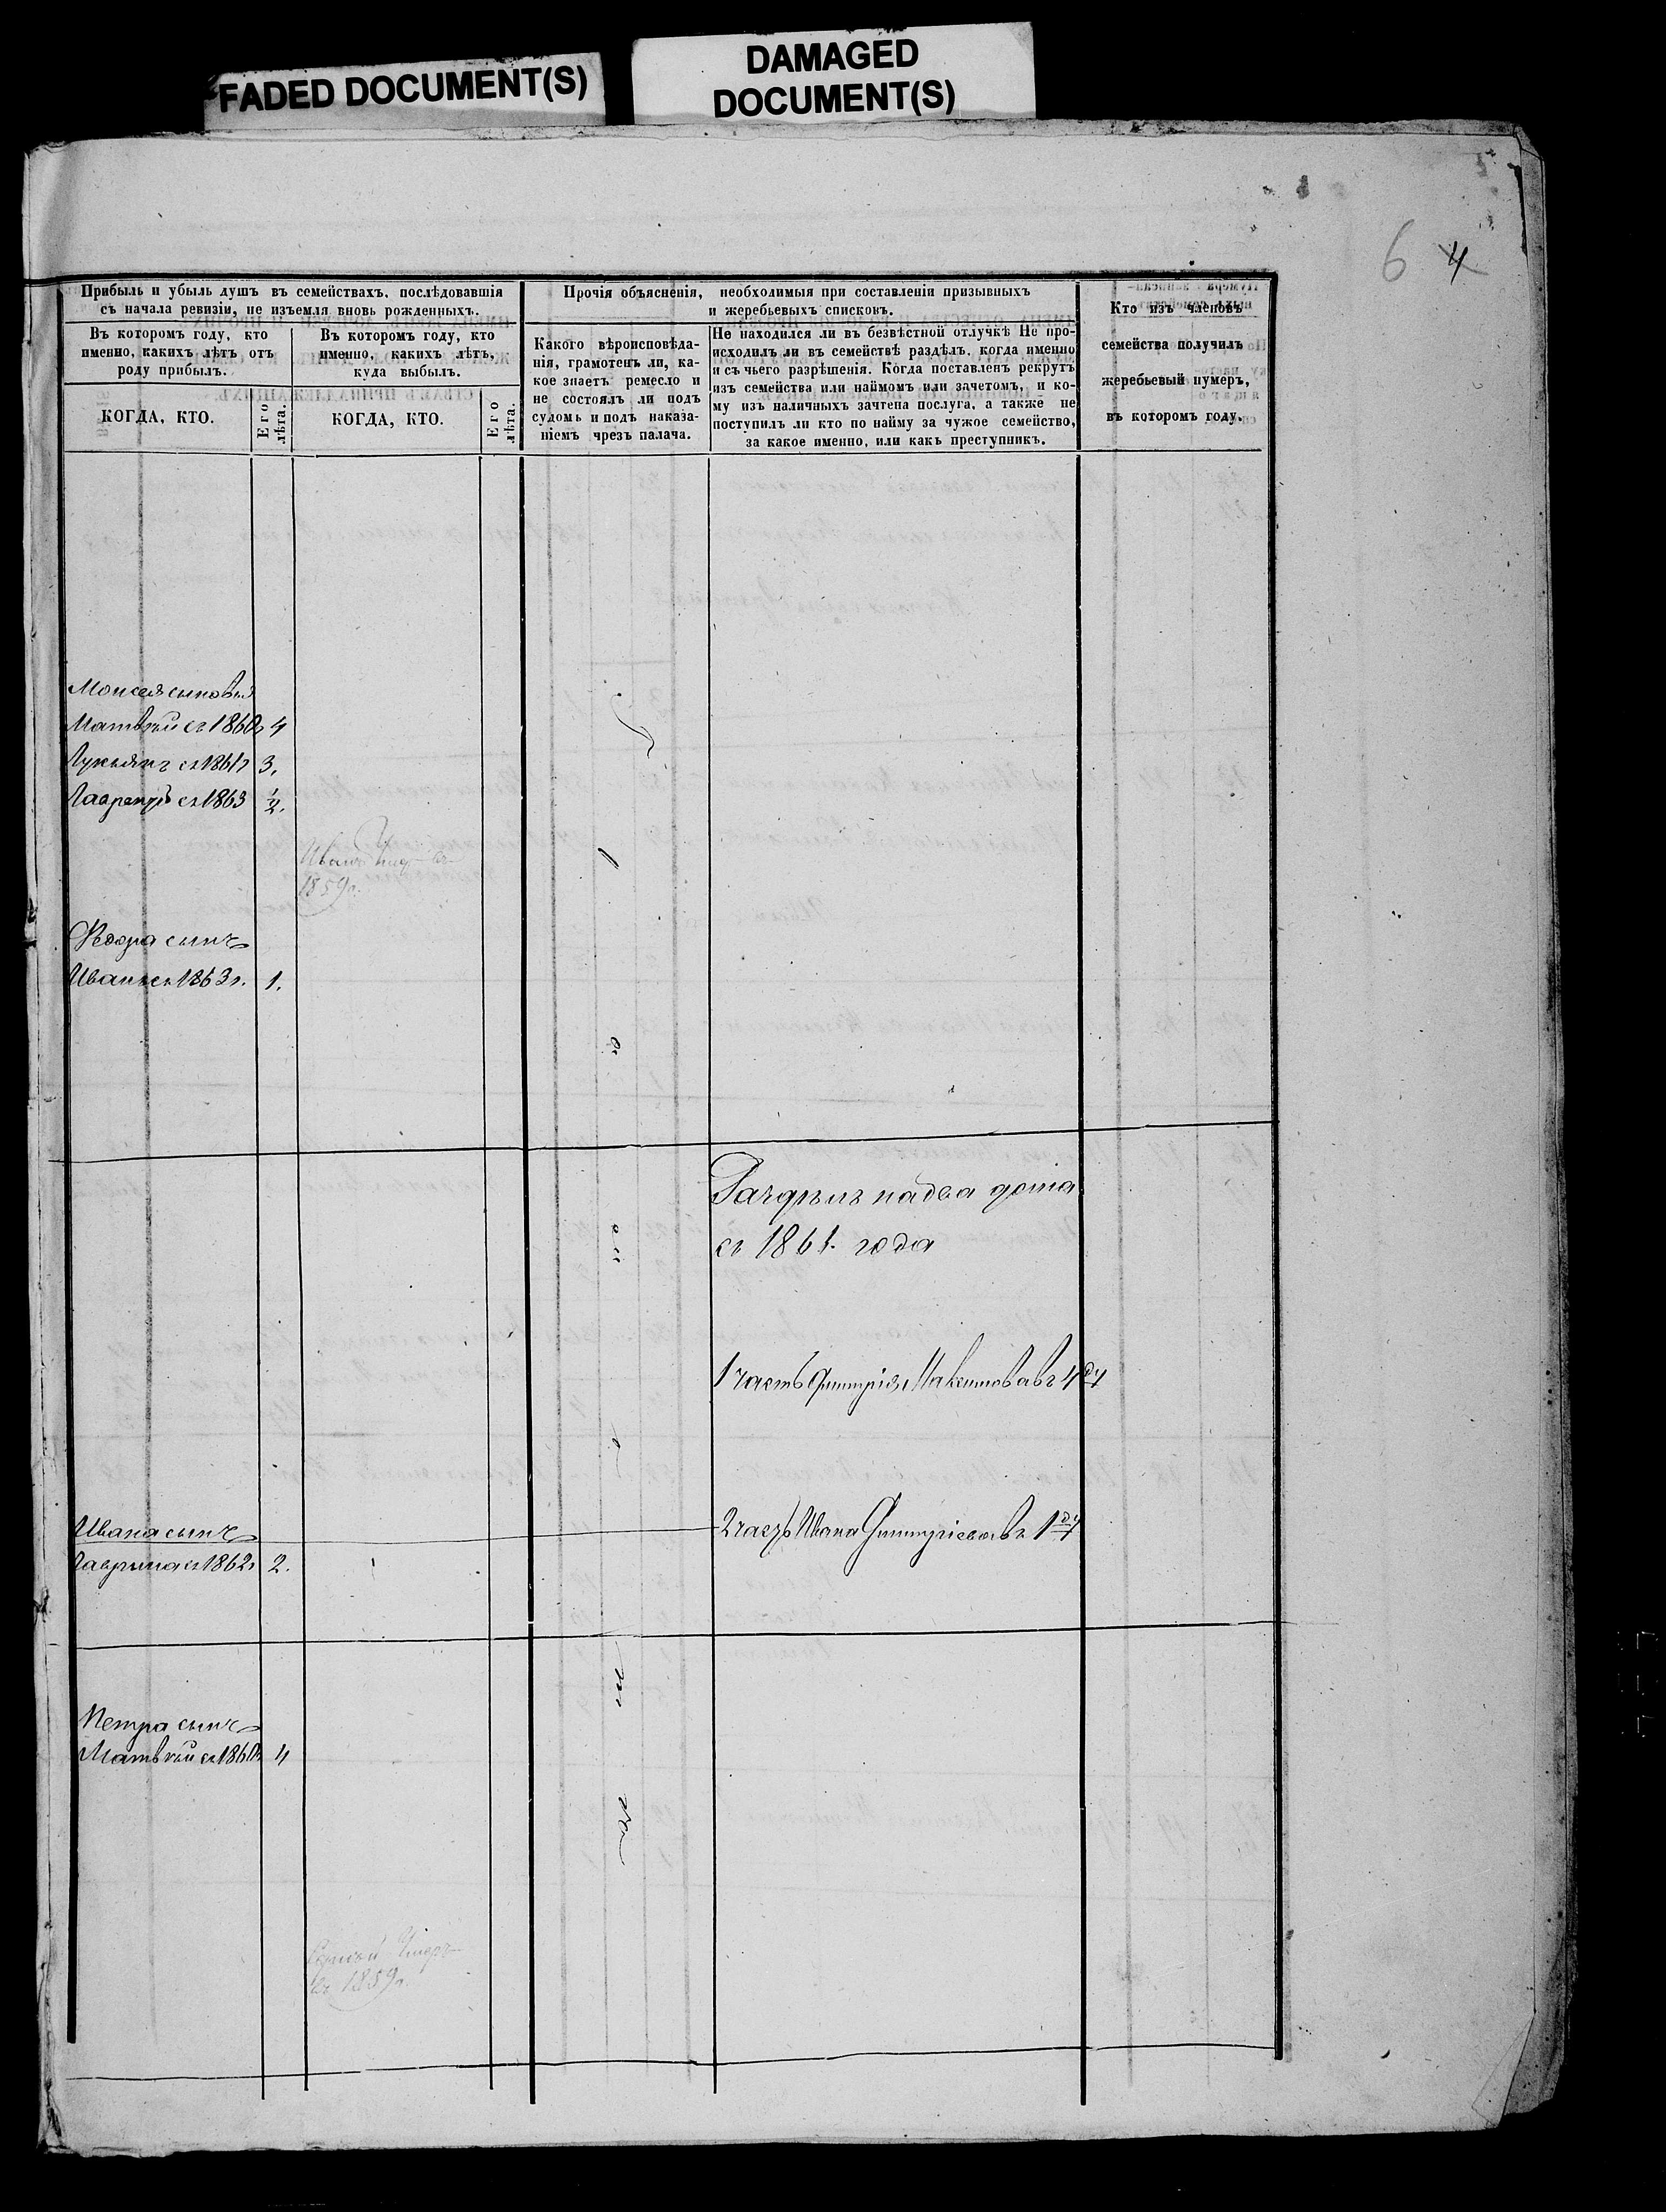 FADED DOCUMENT(S)
DAMAGED
DOCUMENT(S)
6 4
Прибыль и убыль душъ въ семействахъ, послѣдовавшія
съ начала ревизіи, не изъемля вновь рожденныхъ.
Въ которомъ году, кто
именно, какихъ лѣтъ отъ
роду прибылъ.
КОГДА, КТО.
Его
лѣта.
Въ которомъ году, кто
именно, какихъ лѣтъ,
куда выбылъ.
КОГДА, КТО.
Его
лѣта.
Прочія объясненія, необходимыя при составленіи призывныхъ
и жеребьевыхъ списковъ.
Какого вѣроисповѣда-
нія, грамотенъ ли, ка-
кое знаетъ ремесло и
не состоялъ ли подъ
судомъ и подъ наказа-
ніемъ чрезъ палача.
Не находился ли въ безвѣстной отлучкѣ Не про-
исходилъ ли въ семействѣ раздѣлъ, когда именно
и съ чьего разрѣшенія. Когда поставленъ рекрутъ
изъ семейства или наймомъ или зачетомъ, и ко-
му изъ наличныхъ зачтена послуга, а также не
поступилъ ли кто по найму за чужое семейство,
за какое именно, или какъ преступникъ.
Кто изъ членовъ
семейства получилъ
жеребьевый нумеръ,
въ которомъ году.
Моисея сыновья
Матвѣй съ 1860г 4
Лукьянъ съ 1861г 3.
Лаврентій съ 1863 1/2.
Иванъ
1859г.
Федора сынъ
Иванъ съ 1863г. 1.
Раздѣлъ на два дома
съ 1861. года
1 часть Дмитрія Максимова въ 4 ду
Ивана сынъ
2 часть Ивана Дмитріева въ 1 ду
Гаврила съ 1862г 2.
Петра сынъ
Матвѣй съ 1860г 4
Сергѣй Умеръ
въ 1859г.